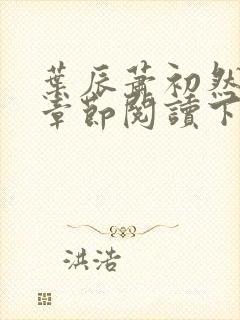 葉辰蕭初然
章節閱讀下
洪浩